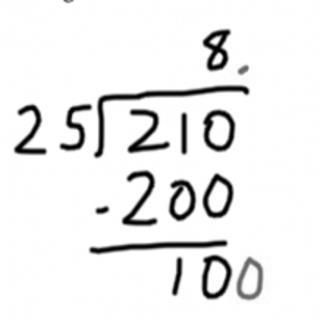 8.
25)210
-200
100